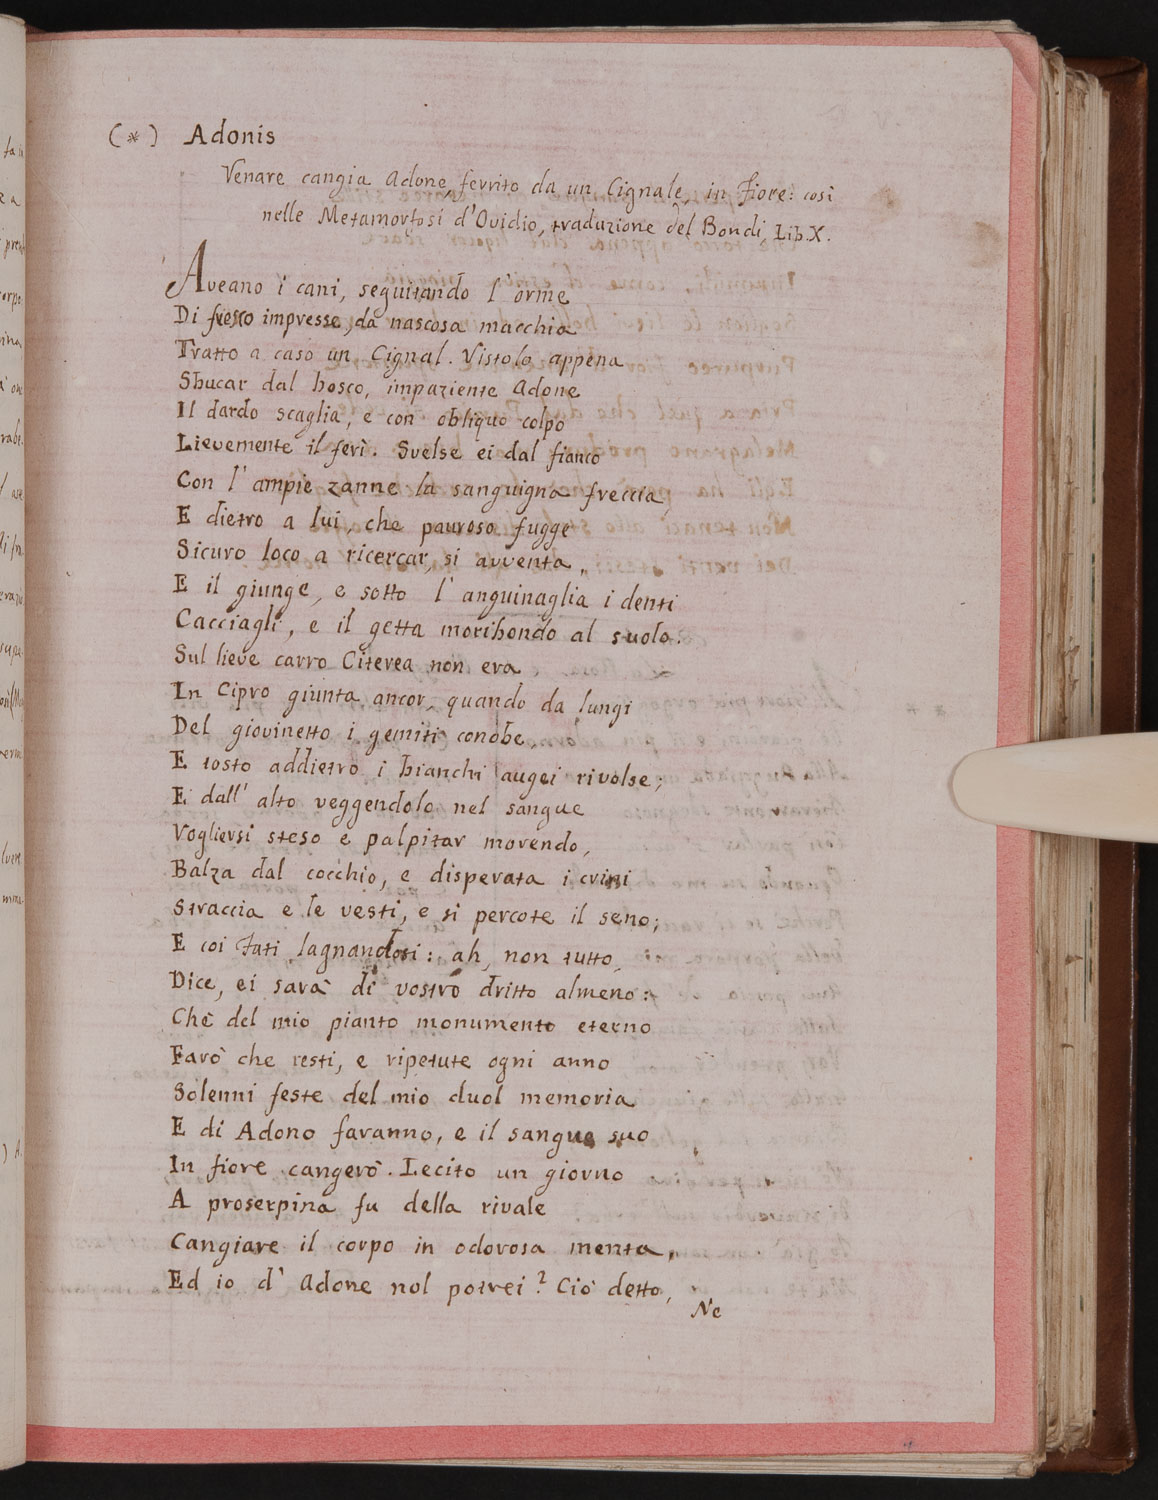 (*) Adonis
Venere cangia Adone, ferito da un Cignale, in Fiore: così
nelle Metamorfosi d'Ovidio, traduzione del Bondi, Lib. X.
Aveano i cani, seguitando l'orme
Di fresco impresse, da nascosa macchia
Tratto a caso un Cignal. Vistolo appena
Sbucar dal bosco, impaziente Adone
Il dardo scaglia, e con obliquo colpo
Lievemente il ferì. Svelse ei dal fianco
Con l'ampie zanne la sanguigna freccia,
E dietro a lui, che pauroso fugge
Sicuro loco a ricercar, si avventa,
E il giunge, e sotto l'anguinaglia i denti
Cacciagli, e il getta moribondo al suolo.
Sul lieve carro Citerea non era
In Cipro giunta ancor, quando da lungi
Del giovinetto i gemiti conobe
E tosto addietro i bianchi augei rivolse;
E dall'alto veggendolo nel sangue
Vogliersi steso e palpitar morendo,
Balza dal cocchio, e disperata i crini
Straccia e le vesti, e si percote il seno;
E coi Fati lagnandosi: ah, non tutto,
Dice, ei sarà di vostro dritto almeno:
Chè del mio pianto monumento eterno
Farò che resti, e ripetute ogni anno
Solenni feste del mio duol memoria
E di Adono faranno, e il sangue suo
In fiore cangerò. Lecito un giorno
A proserpina fu della rivale
Cangiare il corpo in odorosa menta,
Ed io d'Adone nol potrei? Ciò detto,
Ne